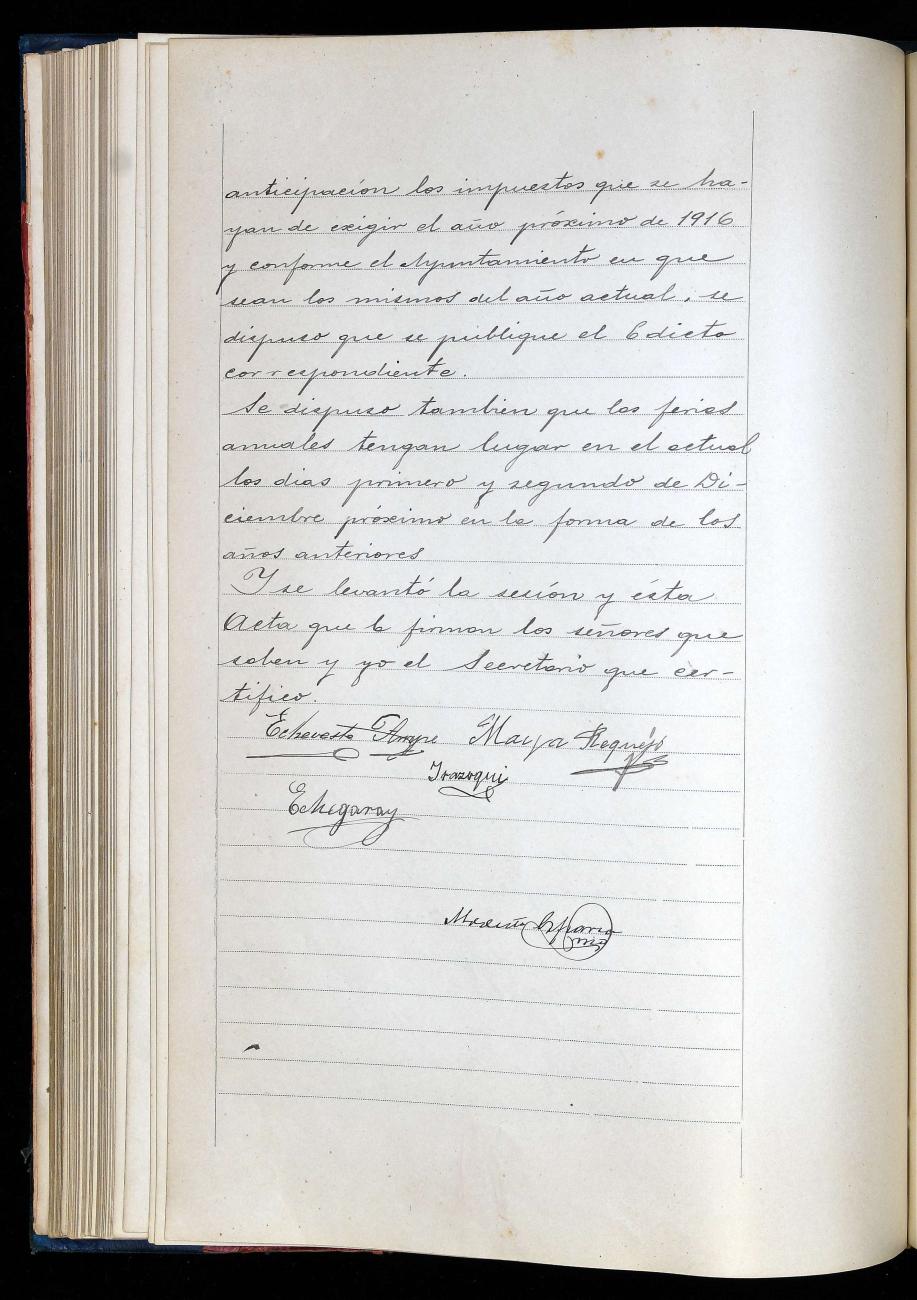 anticipación los impuestos que se ha-
yan de exigir el año próximo de 1916
y conforme el Ayuntamiento en que
sean los mismos del año actual, se
dispuso que se publique el Edicto
correspondiente.
Se dispuso tambien que las ferias
anuales tengan lugar en el actual
los dias primero y segundo de Di-
ciembre próximo en la forma de los
años anteriores
Y se levantó la sesión y ésta
Acta que la firman los señores que
saben y yo el Secretario que cer-
tifico.
Echeveste Maya Requejo
Irazoqui
Echegaray